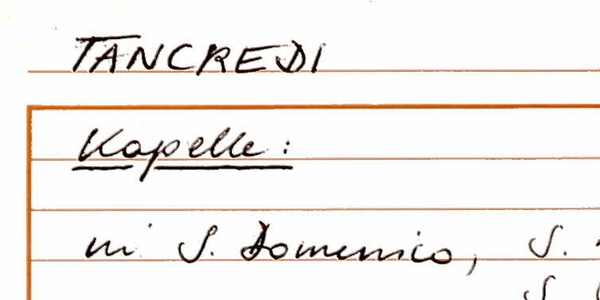 TANCREDI
Kapelle:
in S. Domenico, S.
S.